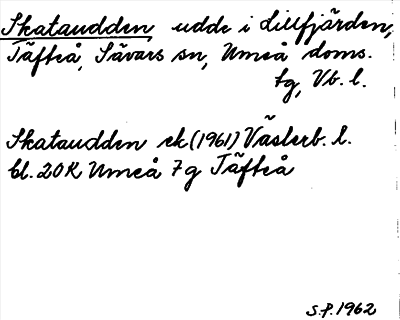 Skataudden, udde i Lillfjärden,
Täfteå, Sävars sn, Umeå doms.
tg, Vb. l.
Skataudden ek (1961) Västerb. l.
bl. 20K Umeå 7g Täfteå
S.P. 1962